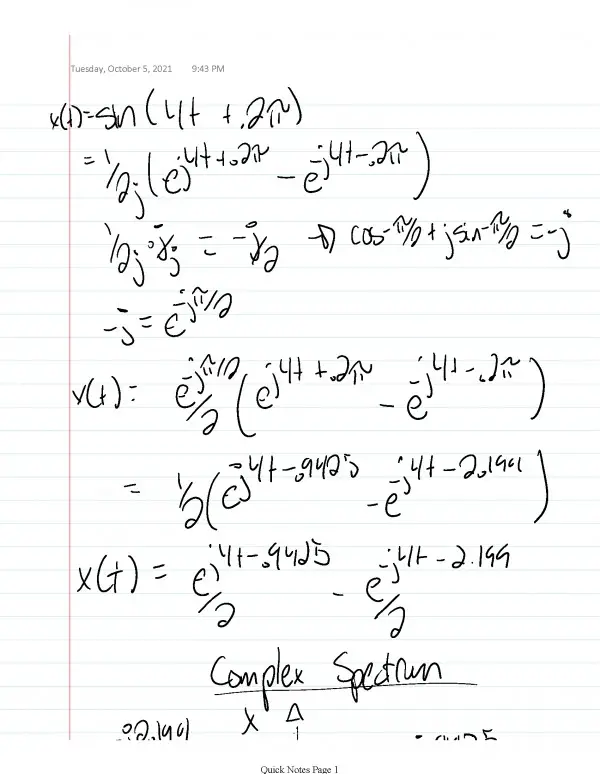 Tuesday, October 5, 2021 9:43 PM
x(t)=sin(4t + .2π)
= 1/2j (e^j4t+.2π - e^-j4t-.2π)
1/2j · -j/-j = -j/2 → cos-π/2 + j sin-π/2 = -j
-j = e^-jπ/2
x(t) = e^-jπ/2/2 (e^j4t+.2π - e^-j4t-.2π)
= 1/2(e^j4t-.9425 - e^-j4t-2.1991)
x(t) = e^j4t-.9425/2 - e^-j4t-2.199/2
Complex Spectrum
X
Quick Notes Page 1